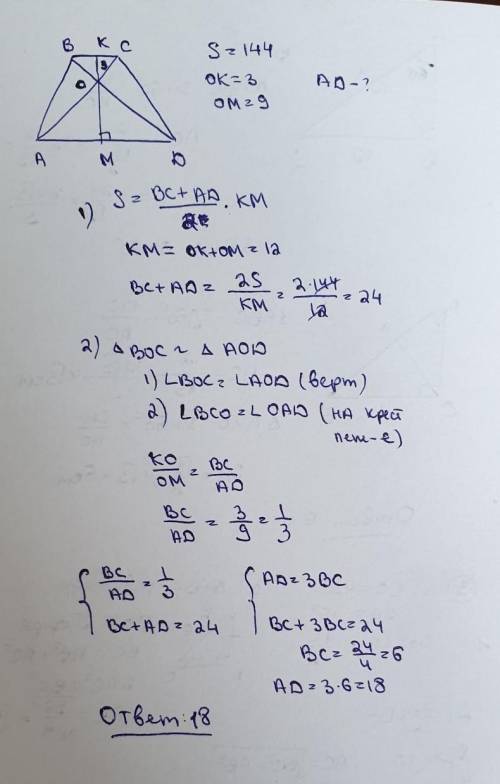 B K C
S = 144
3
OK = 3
O
AD - ?
OM = 9
A M D
1) S = BC + AD / 2 · KM
KM = OK + OM = 12
BC + AD = 2S / KM = 2·144 / 12 = 24
2) △ BOC ~ △ AOD
1) ∠BOC = ∠AOD (верт)
2) ∠BCO = ∠OAD (на крест
леж-е)
KO / OM = BC / AD
BC / AD = 3 / 9 = 1 / 3
BC / AD = 1 / 3
AD = 3BC
BC + AD = 24
BC + 3BC = 24
BC = 24 / 4 = 6
AD = 3·6 = 18
Ответ: 18